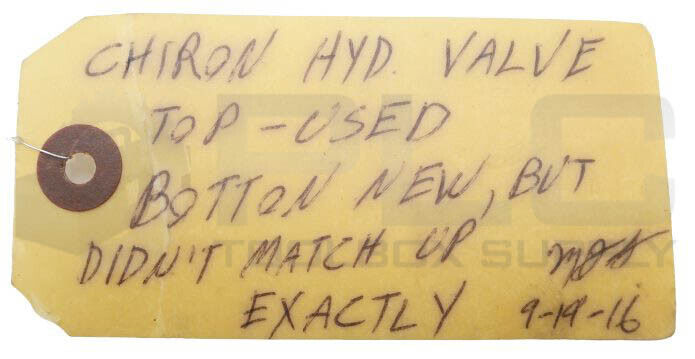 CHIRON HYD. VALVE
TOP - USED
BOTTON NEW, BUT
DIDN'T MATCH UP
EXACTLY 9-19-16
PLC
BOX SUPPLY